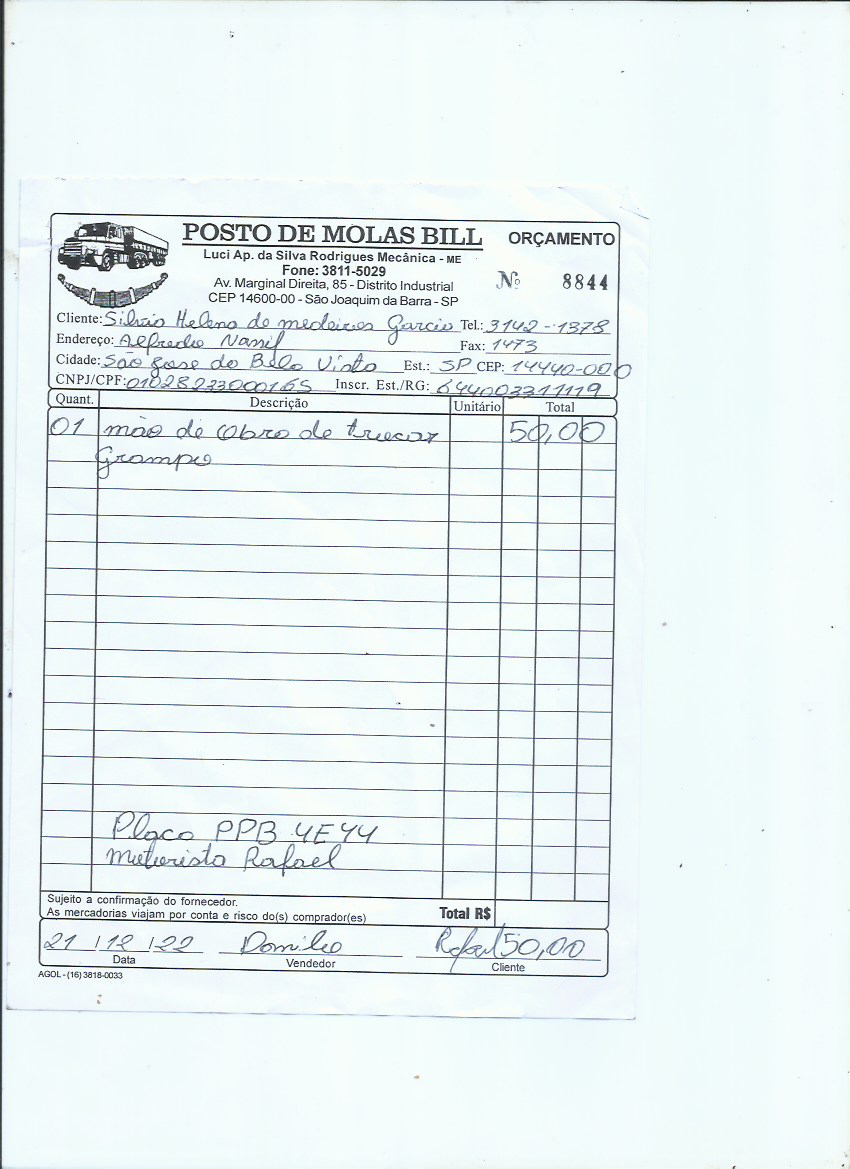 POSTO DE MOLAS BILL ORÇAMENTO
Luci Ap. da Silva Rodrigues Mecânica - ME
Fone: 3811-5029
Av. Marginal Direita, 85 - Distrito Industrial Nº 8844
CEP 14600-00 - São Joaquim da Barra - SP
Cliente: Silvia Helena de medeiros Garcia Tel.: 3142-1378
Endereço: Alfredo Fax: 1473
Cidade: São Jose do Bela Vista Est.: SP CEP: 14440-000
CNPJ/CPF: 01028233000165 Inscr. Est./RG: 644003311119
Quant. Descrição Unitário Total
01 mão de Obra de trocar 50,00
Grampo
Placa PPB 4E44
motorista Rafael
Sujeito a confirmação do fornecedor.
As mercadorias viajam por conta e risco do(s) comprador(es) Total R$
21/12/22 Danilo Rafael 50,00
Data Vendedor Cliente
AGOL - (16) 3818-0033